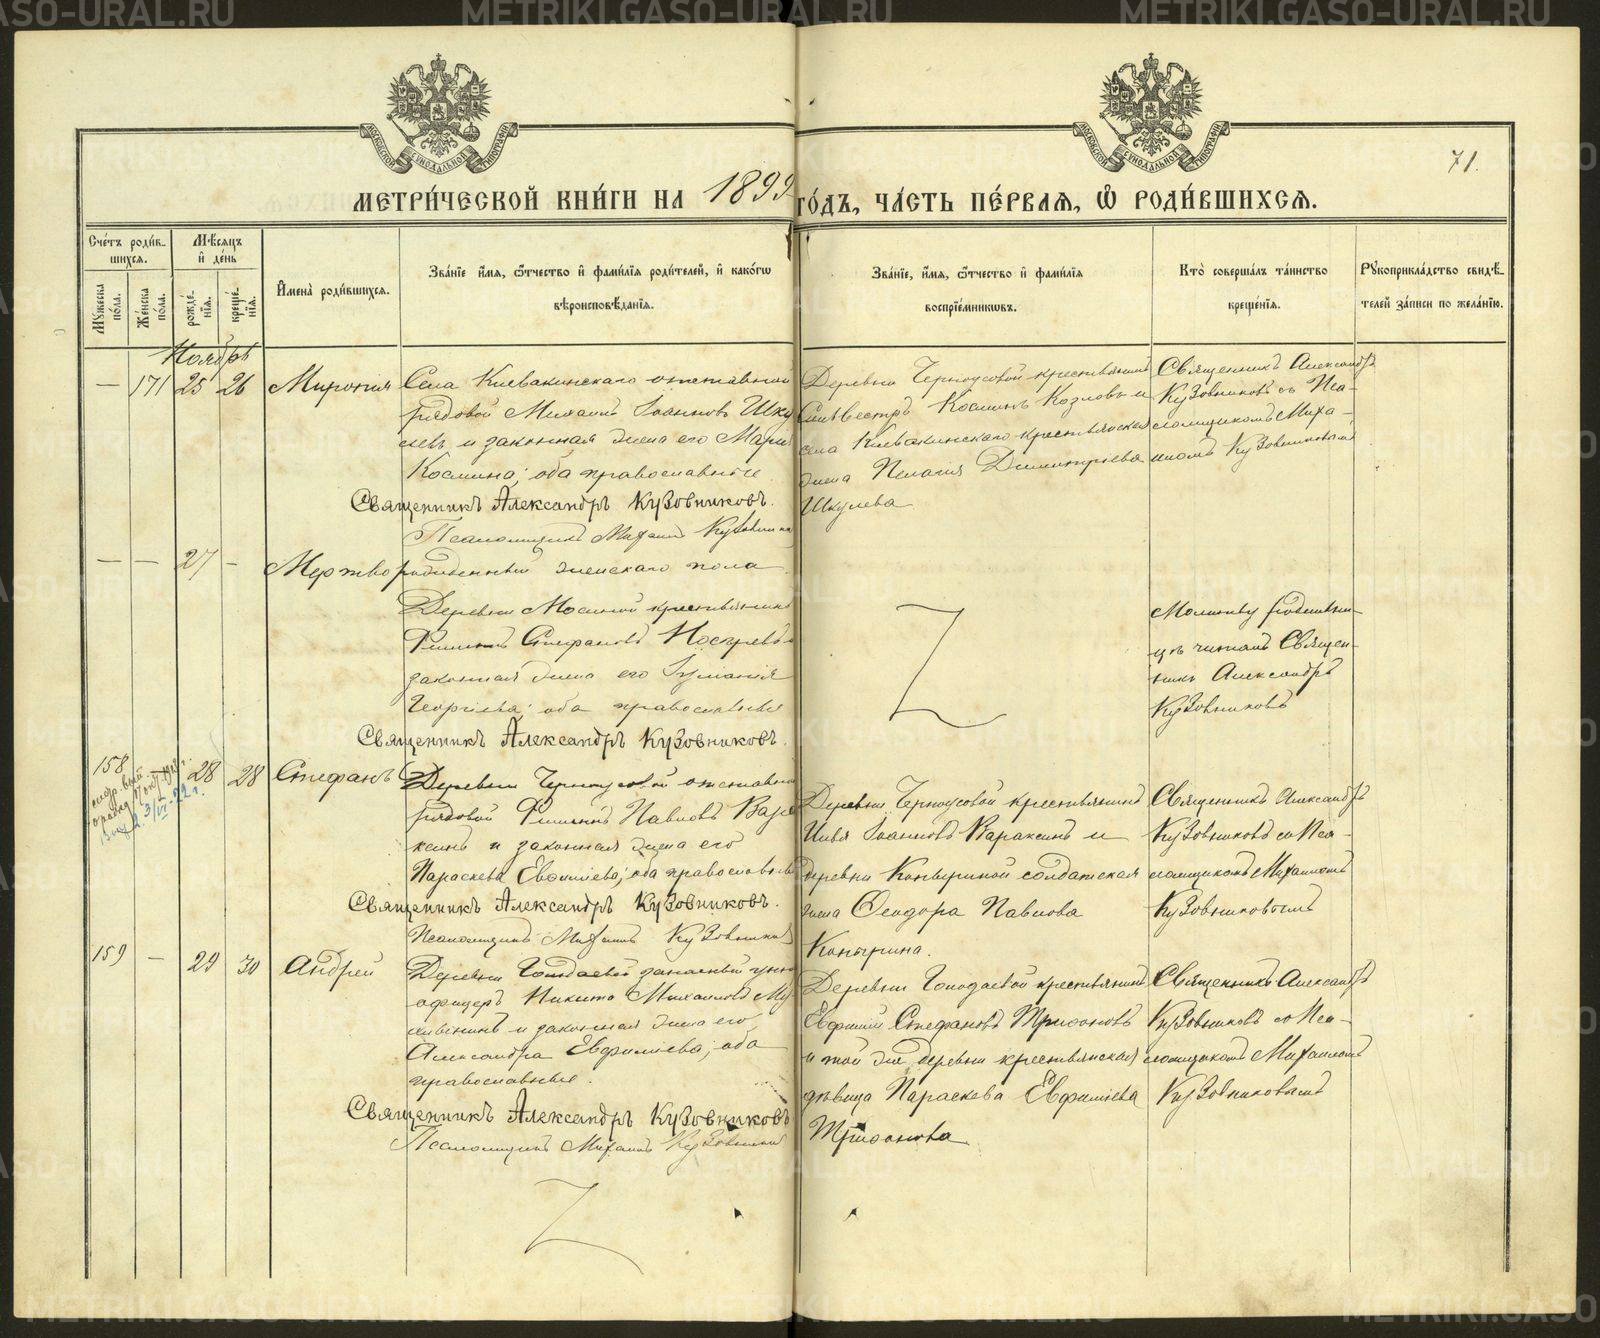 METRIKI.GASO-URAL.RU
МОСКОВСКОЙ СѴНОДАЛЬНОЙ ТИПОГРАФІИ
МОСКОВСКОЙ СѴНОДАЛЬНОЙ ТИПОГРАФІИ
71.
МЕТРИ́ЧЕСКОЙ КНИ́ГИ НА 1899 ГО́ДЪ, ЧА́СТЬ ПЕ́РВАѦ, Ѡ҆ РОДИ́ВШИХСѦ.
Сче́тъ роди́в-
шихсѧ.
Мꙋжеска по́ла.
Же́нска по́ла.
Мѣ́сѧцъ
и҆ де́нь
рожде́-
нїѧ.
креще́-
нїѧ.
И҆мена̀ роди́вшихсѧ.
Зва́нїе и҆́мѧ, ѻ҆́тчество и҆ фами́лїѧ роди́телей, и҆ како́гѡ
вѣроисповѣ́данїѧ.
Зва́нїе, и҆́мѧ, ѻ҆́тчество и҆ фами́лїѧ
воспрїе́мникѡвъ.
Кто̀ соверша́лъ та́инство
креще́нїѧ.
Рꙋкоприкла́дство свидѣ́-
телей за́писи по жела́нїю.
Ноябрь
— 171 25 26 Миропия
Села Киевакинскаго отставной
рядовой Михаилъ Іоанновъ Шку
левъ и законная жена его Марія
Космина; оба православные
Священникъ Александръ Кузовниковъ.
Псаломщикъ Михаилъ Кузовников
Деревни Черноусовой крестьянинъ
Силвестръ Косминъ Козловъ и
села Киевакинскаго крестьянская
жена Пелагия Димитриева
Шкулева
Священникъ Александръ
Кузовниковъ съ Пса-
ломщикомъ Миха-
иломъ Кузовниковымъ
— — 27 —
Мертворожденный женскаго пола
Деревни Мосиной крестьянинъ
Филиппъ Стефановъ Носыревъ и
законная жена его Іуліанія
Георгіева; оба православные
Священникъ Александръ Кузовниковъ.
Молитву родильни-
цѣ читалъ Священ-
никъ Александръ
Кузовниковъ
158
28 28 Стефанъ
Деревни Черноусовой отставной
рядовой Филиппъ Павловъ Вара
ксинъ и законная жена его
Параскева Евѳиміева; оба православные
Священникъ Александръ Кузовниковъ.
Псаломщикъ Михаилъ Кузовников
Деревни Черноусовой крестьянинъ
Илья Іоанновъ Вараксинъ и
деревни Копыриной солдатская
жена Ѳеодора Павлова
Копырина.
Священникъ Александръ
Кузовниковъ со Пса-
ломщикомъ Михаиломъ
Кузовниковымъ
159 — 29 30 Андрей
Деревни запасный унт
офицеръ Никита Михаиловъ
и законная жена его
Александра Евфиміева; оба
православные.
Священникъ Александръ Кузовниковъ
Псаломщикъ Михаилъ Кузовников
Деревни крестьянинъ
Евфимій Стефановъ Трифоновъ
и той же деревни крестьянская
дѣвица Параскева Евфиміева
Трифонова
Священникъ Александръ
Кузовниковъ со Пса-
ломщикомъ Михаиломъ
Кузовниковымъ